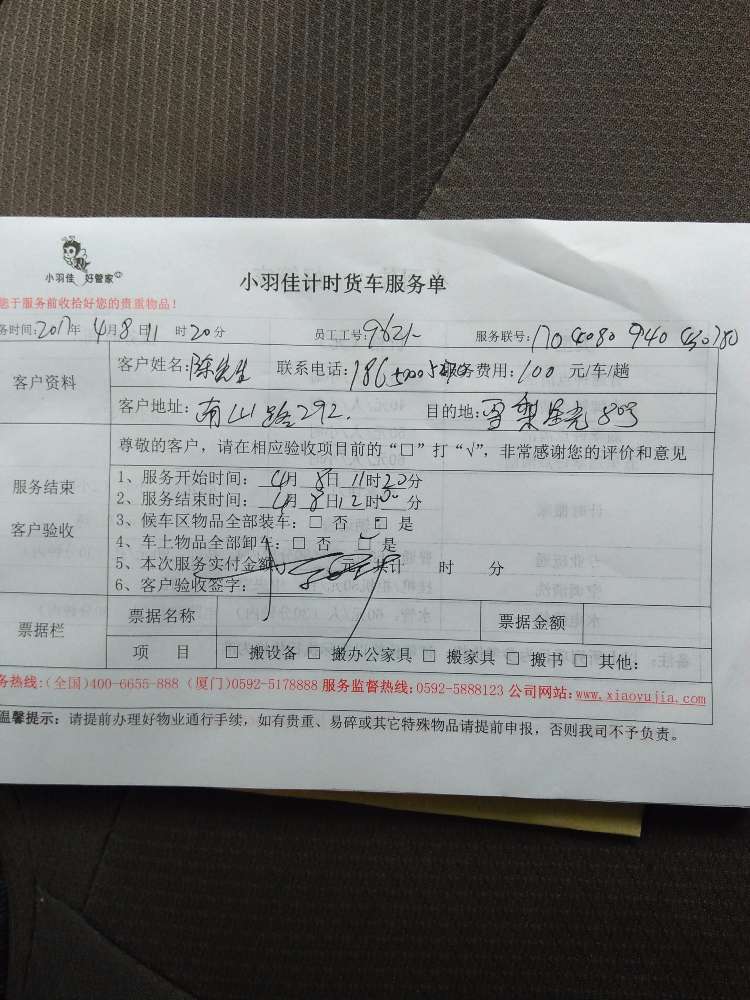 小羽佳 好管家
小羽佳计时货车服务单
您于服务前收拾好您的贵重物品！
务时间:2017年4月8日11时20分 员工工号:9621 服务联号:
客户资料
客户姓名:陈先生 联系电话: 服务费用:100 元/车/趟
客户地址:南山路292. 目的地:雪梨星光8号
服务结束
客户验收
尊敬的客户，请在相应验收项目前的“□”打“√”，非常感谢您的评价和意见
1、服务开始时间：4月8日11时20分
2、服务结束时间：4月8日12时30分
3、候车区物品全部装车：□ 否 □ 是
4、车上物品全部卸车：□ 否 ☑ 是
5、本次服务实付金额 元 共计 时 分
6、客户验收签字：
票据栏
票据名称 票据金额
项 目 □ 搬设备 □ 搬办公家具 □ 搬家具 □ 搬书 □ 其他：
务热线:(全国)400-6655-888 (厦门)0592-5178888 服务监督热线:0592-5888123 公司网站:www.xiaoyujia.com
温馨提示：请提前办理好物业通行手续，如有贵重、易碎或其它特殊物品请提前申报，否则我司不予负责。